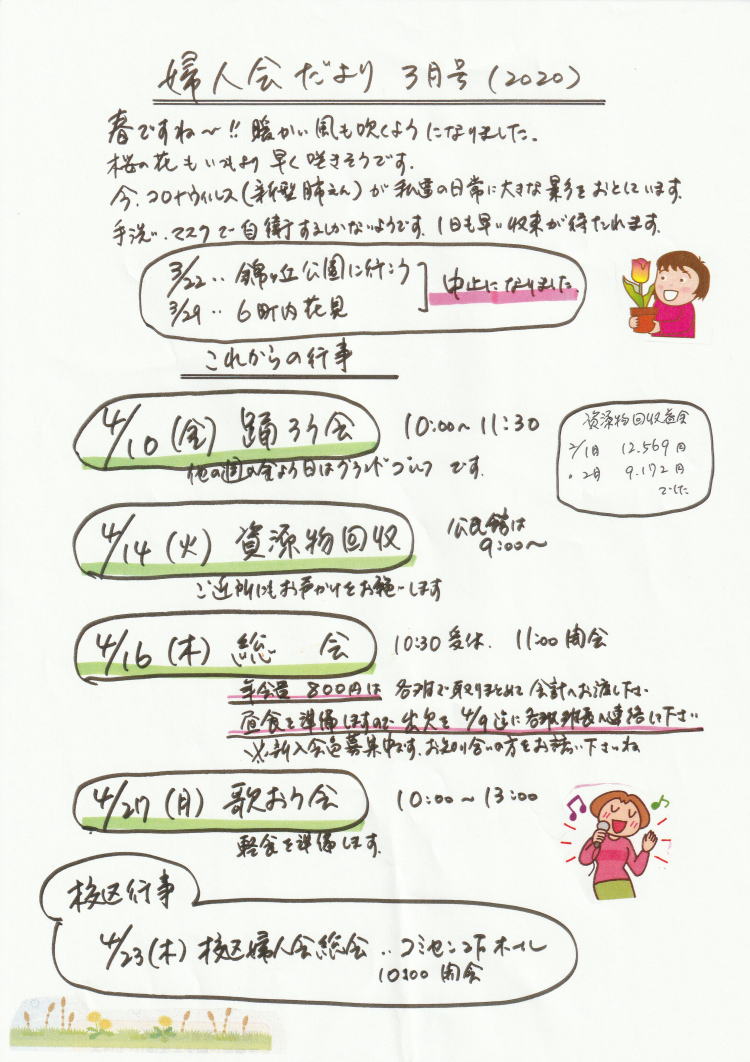 婦人会だより 3月号(2020)
春ですね〜!! 暖かい風も吹くようになりました。
桜の花もいつもより早く咲きそうです。
今、コロナウィルス(新型肺えん)が私達の日常に大きな影をおとしています。
手洗い、マスクで自衛するしかないようです。1日も早い収束が待たれます。
3/22‥錦ヶ丘公園に行こう
3/29‥6町内花見
中止になりました
これからの行事
4/10(金) 踊ろう会 10:00〜11:30
他の週の金よう日はグランドゴルフです。
資源物回収益金
2/1月 12.569円
・2月 9.172円
でした
4/14(火) 資源物回収 公民館は
9:00〜
ご近所にもお声かけをお願いします
4/16(木) 総会 10:30 受付. 11:00 開会
年会費 800円は各班で取りまとめて会計へお渡し下さい
昼食を準備しますので出欠を4/9迄に各班班長へ連絡して下さい
※新入会員募集中です。お知り合いの方をお誘い下さいね
4/27(月) 歌おう会 10:00〜13:00
軽食を準備します。
校区行事
4/23(木) 校区婦人会総会‥コミセン下ホール
10:00 開会